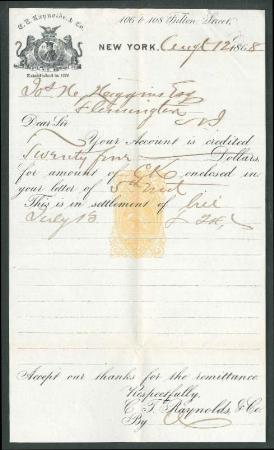 C. T. Raynolds & Co.
106 & 108 Fulton Street,
Established in 1770
NEW YORK, Augt 12 1868
Jos H. Higgins Esq
Flemington
N J
Dear Sir
Your Account is credited
Twenty five Dollars,
for amount of CK enclosed in
your letter of 5th inst
This is in settlement of bill
July 13
Accept our thanks for the remittance
Respectfully,
C. T. Raynolds & Co.
By